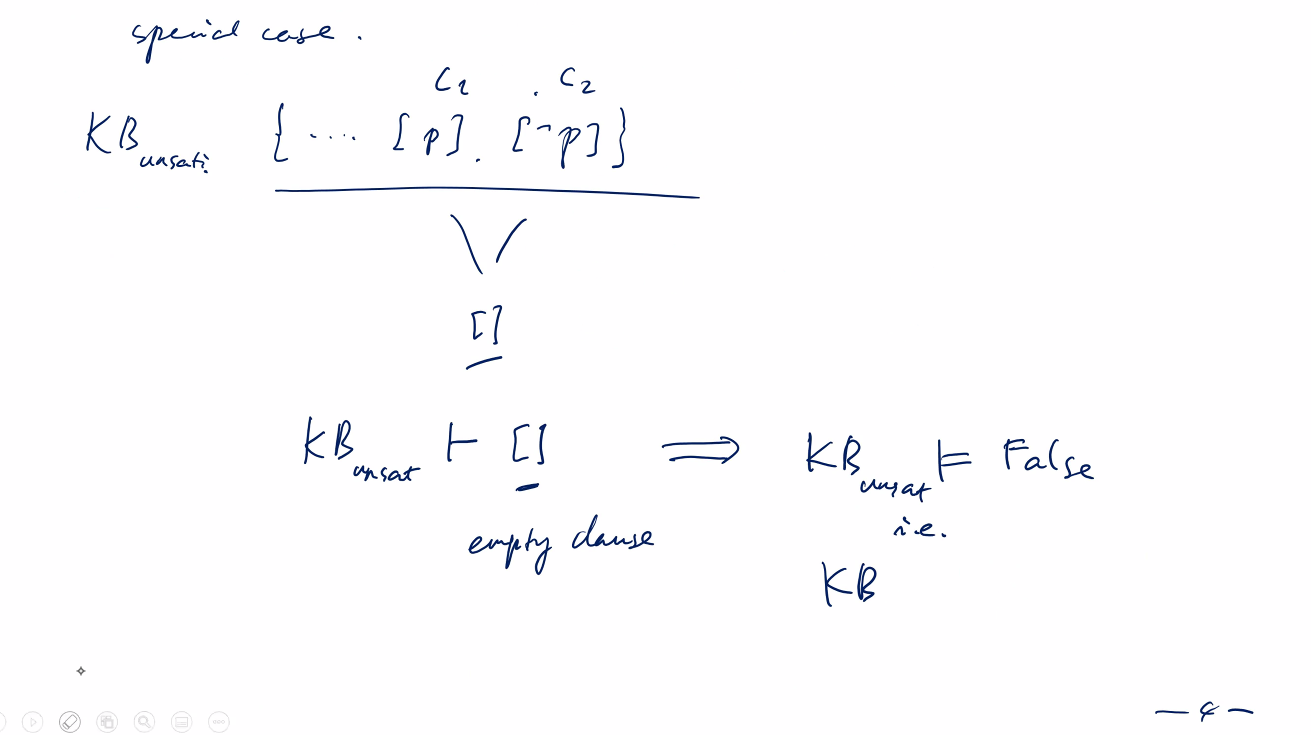 special case.
C₁ . C₂
KB unsati. { .... [p]. [¬p] }
[]
KB unsat ⊢ [] ⟹ KB unsat ⊨ False
empty clause i.e.
KB
— 4 —